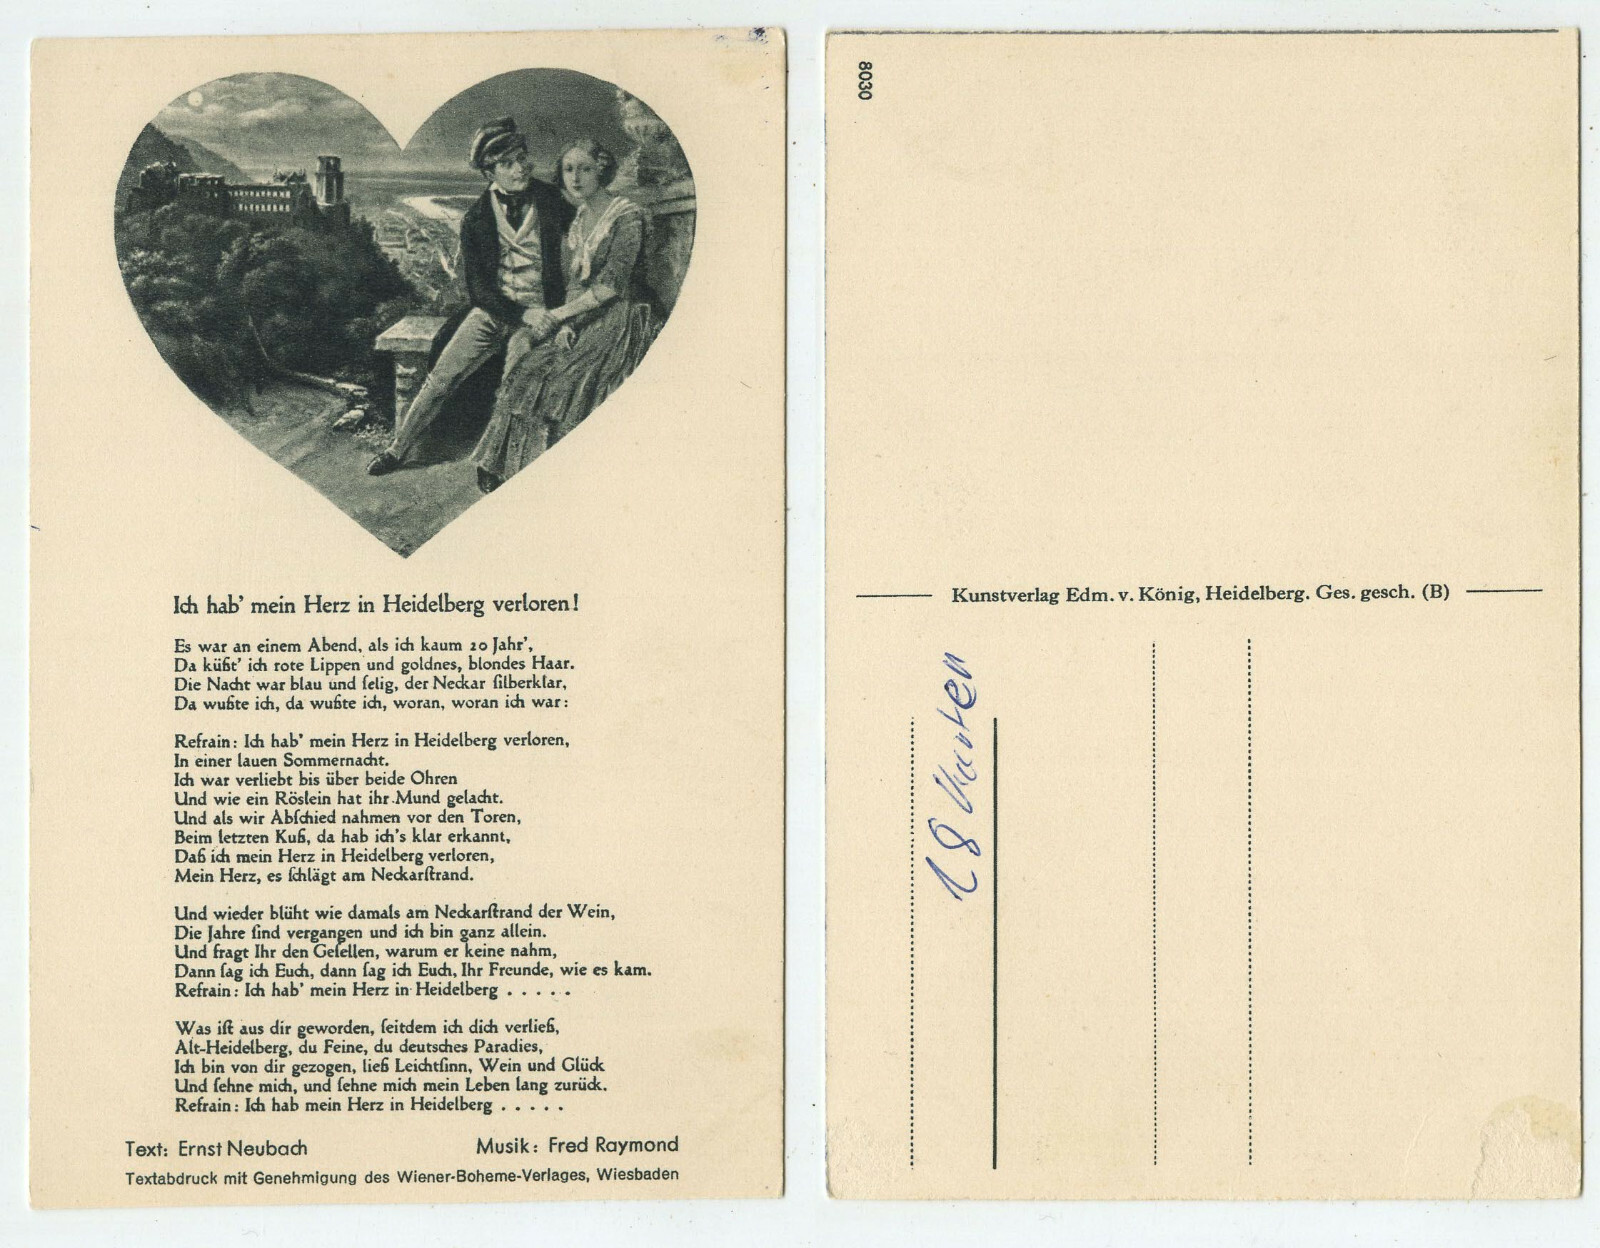 Ich hab' mein Herz in Heidelberg verloren!
Es war an einem Abend, als ich kaum 20 Jahr',
Da küßt' ich rote Lippen und goldnes, blondes Haar.
Die Nacht war blau und selig, der Neckar silberklar,
Da wußte ich, da wußte ich, woran, woran ich war:
Refrain: Ich hab' mein Herz in Heidelberg verloren,
In einer lauen Sommernacht.
Ich war verliebt bis über beide Ohren
Und wie ein Röslein hat ihr Mund gelacht.
Und als wir Abschied nahmen vor den Toren,
Beim letzten Kuß, da hab ich's klar erkannt,
Daß ich mein Herz in Heidelberg verloren,
Mein Herz, es schlägt am Neckarstrand.
Und wieder blüht wie damals am Neckarstrand der Wein,
Die Jahre sind vergangen und ich bin ganz allein.
Und fragt Ihr den Gesellen, warum er keine nahm,
Dann sag ich Euch, dann sag ich Euch, Ihr Freunde, wie es kam.
Refrain: Ich hab' mein Herz in Heidelberg . . . . .
Was ist aus dir geworden, seitdem ich dich verließ,
Alt-Heidelberg, du Feine, du deutsches Paradies,
Ich bin von dir gezogen, ließ Leichtsinn, Wein und Glück
Und sehne mich, und sehne mich mein Leben lang zurück.
Refrain: Ich hab mein Herz in Heidelberg . . . . .
Text: Ernst Neubach Musik: Fred Raymond
Textabdruck mit Genehmigung des Wiener-Boheme-Verlages, Wiesbaden
8030
Kunstverlag Edm. v. König, Heidelberg. Ges. gesch. (B)
18 Karten